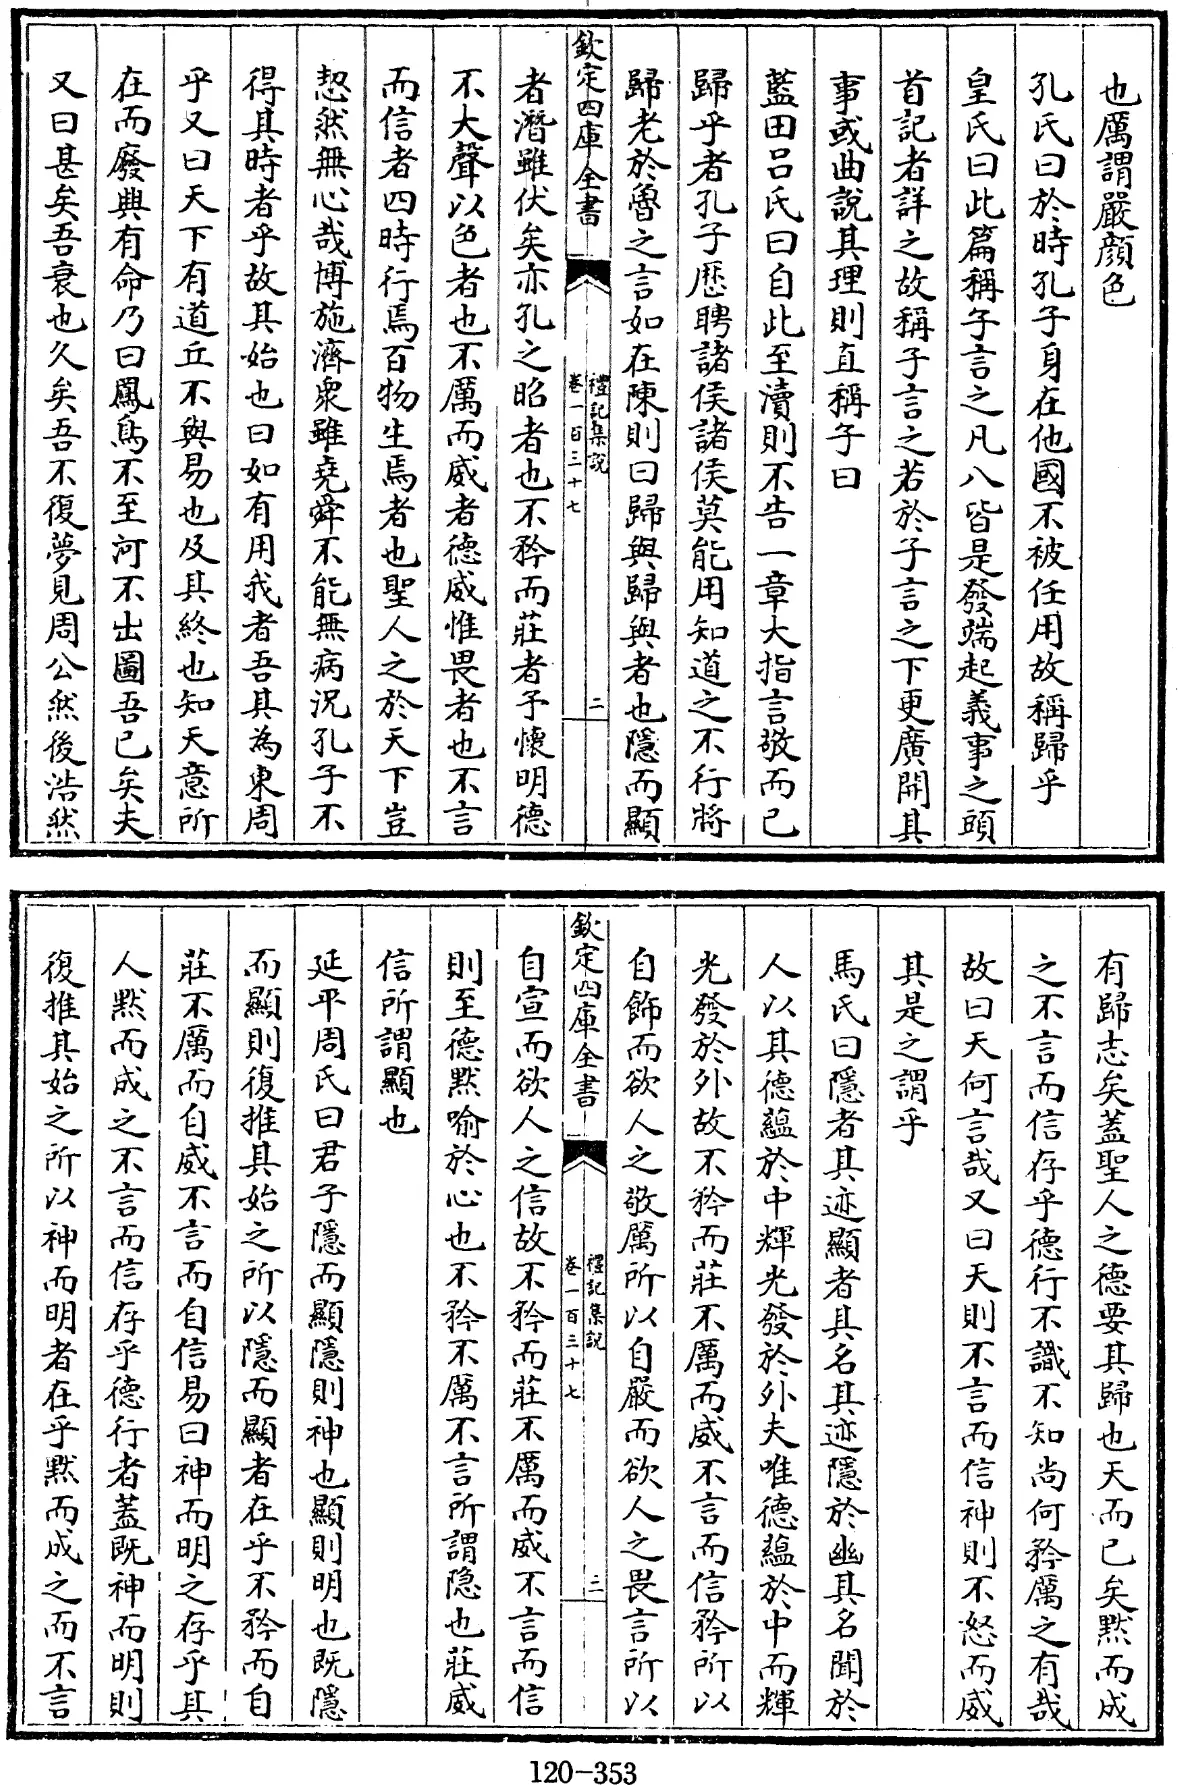 也厲謂嚴顔色
孔氏曰於時孔子身在他國不被任用故稱歸乎
皇氏曰此篇稱子言之凡八皆是發端起義事之頭
首記者詳之故稱子言之若於子言之下更廣開其
事或曲說其理則直稱子曰
藍田呂氏曰自此至瀆則不告一章大指言敬而已
歸乎者孔子歷聘諸侯諸侯莫能用知道之不行將
歸老於魯之言如在陳則曰歸與歸與者也隱而顯
欽定四庫全書
禮記集說
卷一百三十七
二
者潛雖伏矣亦孔之昭者也不矜而莊者予懷明德
不大聲以色者也不厲而威者德威惟畏者也不言
而信者四時行焉百物生焉者也聖人之於天下豈
恝然無心哉博施濟衆雖堯舜不能無病況孔子不
得其時者乎故其始也曰如有用我者吾其為東周
乎又曰天下有道丘不與易也及其終也知天意所
在而廢興有命乃曰鳳鳥不至河不出圖吾已矣夫
又曰甚矣吾衰也久矣吾不復夢見周公然後浩然
有歸志矣蓋聖人之德要其歸也天而已矣黙而成
之不言而信存乎德行不識不知尚何矜厲之有哉
故曰天何言哉又曰天則不言而信神則不怒而威
其是之謂乎
馬氏曰隱者其迹顯者其名其迹隱於幽其名聞於
人以其德蘊於中輝光發於外夫唯德蘊於中而輝
光發於外故不矜而莊不厲而威不言而信矜所以
自飾而欲人之敬厲所以自嚴而欲人之畏言所以
欽定四庫全書
禮記集說
卷一百三十七
三
自宣而欲人之信故不矜而莊不厲而威不言而信
則至德黙喻於心也不矜不厲不言所謂隐也莊威
信所謂顯也
延平周氏曰君子隱而顯隱則神也顯則明也既隱
而顯則復推其始之所以隱而顯者在乎不矜而自
莊不厲而自威不言而自信易曰神而明之存乎其
人黙而成之不言而信存乎德行者蓋既神而明則
復推其始之所以神而明者在乎黙而成之而不言
120-353